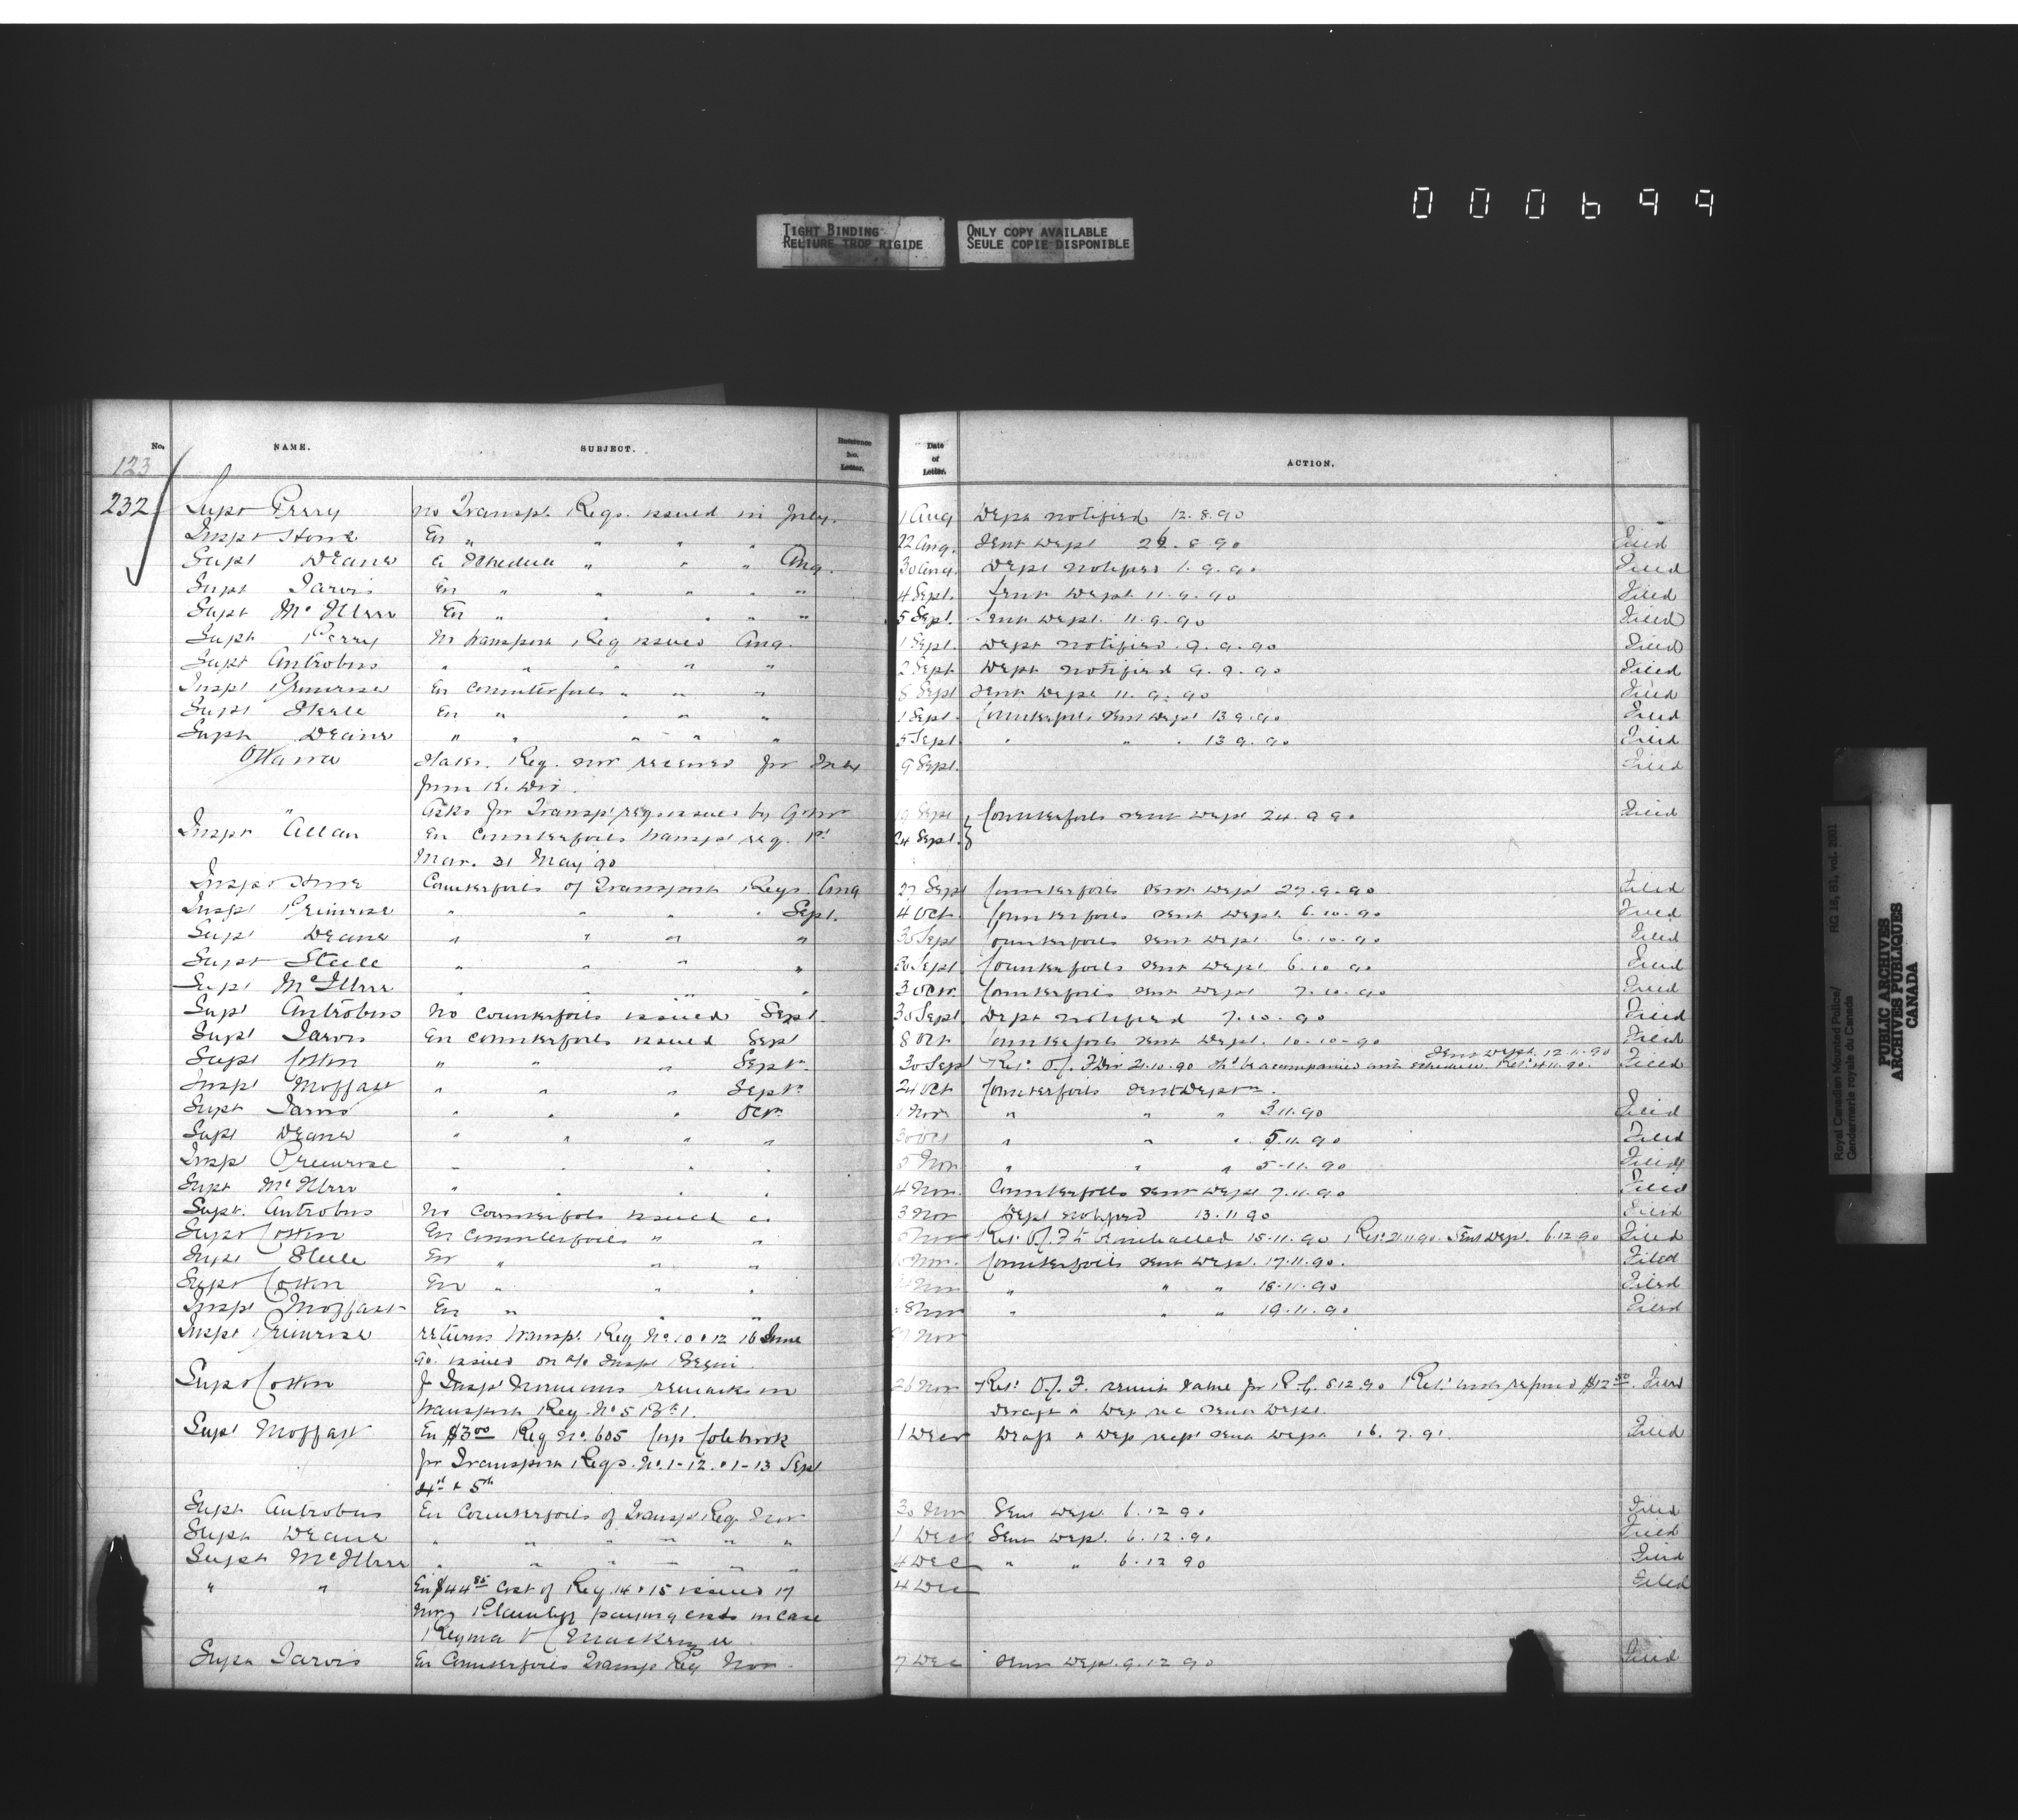 000699
TIGHT BINDING
RELIURE TROP RIGIDE
ONLY COPY AVAILABLE
SEULE COPIE DISPONIBLE
No. NAME. SUBJECT. Reference No. Letter. Date of Letter. ACTION.
123
232 Supt Perry no Transpt. Reqs. issued in July. 1 Aug Dept notified 12.8.90
Inspt Howe En " " " " 22 Aug. Sent Dept 8.90 Filed
Supt Deane a Schedule " " " Aug. 30 Aug. Dept notified 1.9.90 Filed
Supt Jarvis En " " " " " 4 Sept. Sent Dept 11.9.90 Filed
Supt McIllree En " " " " " 5 Sept. Sent Dept. 11.9.90 Filed
Supt Perry no transport Req issued Aug. 1 Sept. Dept notified 9.9.90 Filed
Supt Antrobus " " " " " 2 Sept Dept notified 9.9.90 Filed
Inspt Primrose En Counterfoils " " " 8 Sept Sent Dept 11.9.90 Filed
Supt Steele En " " " " 1 Sept. Counterfoils sent Dept 13.9.90 Filed
Supt Deane " " " " " 5 Sept " " " 13.9.90 Filed
Ottawa States. Req. not received for July 9 Sept. Filed
from K. Div.
" Asks for Transpt reqs issued by 19 Sept Counterfoils sent Dept 24.9.90 Filed
Inspt Allan En Counterfoils transpt req. 1st 24 Sept.
Mar. 31 May 90
Inspt Howe Counterfoils of Transport Reqs. Aug 27 Sept Counterfoils sent Dept 27.9.90 Filed
Inspt Primrose " " " " Sept. 4 Oct. Counterfoils sent Dept. 6.10.90 Filed
Supt Deane " " " " 30 Sept Counterfoils sent Dept. 6.10.90 Filed
Supt Steele " " " " 30 Sept Counterfoils sent Dept. 6.10.90 Filed
Supt McIllree " " " " 3 Oct. Counterfoils sent Dept 7.10.90 Filed
Supt Antrobus No counterfoils issued Sept. 30 Sept. Dept notified 7.10.90 Filed
Supt Jarvis En counterfoils issued Sept 8 Oct Counterfoils sent Dept. 10-10-90 Filed
Sent Dept. 12.11.90
Supt Cotton " " " Sept. 30 Sept Ret. O/. F Div 21.10.90 to be accompanied with schedule Ret. 4.11.90. Filed
Inspt Moffatt " " " Sept. 24 Oct Counterfoils sent Dept
Supt Jarvis " " " Oct. 1 Nov " " " 3.11.90 Filed
Supt Deane " " " " 30 Oct " " " 5.11.90 Filed
Insp Primrose " " " " 5 Nov " " " 5-11.90 Filed
Supt McIllree " " " " 4 Nov. Counterfoils sent Dept 7.11.90 Filed
Supt. Antrobus No Counterfoils issued " 3 Nov Dept notified 13.11.90 Filed
Supt Cotton En Counterfoils " " Nov Ret. O/. F 15.11.90 Ret. 21.11.90. Sent Dept. 6.12.90 Filed
Supt Steele En " " " Nov. Counterfoils sent Dept. 17.11.90. Filed
Supt Cotton En " " " Nov " " " 18.11.90 Filed
Inspt Moffatt En " " " 8 Nov " " " 19.11.90 Filed
Inspt Primrose returns transpt. Req No 10 & 12 16 June Nov
90. issued on a/c Inspt Begin.
Supt Cotton f Inspt Normans remarks on 26 Nov Ret. O/. F. 8.12.90 Ret. with refund $12.50. Filed
transport Req. No 5 Draft & Dep rec sent Dept.
Supt Moffatt En $3.00 Req No. 605 Corp Colebrook 1 Dec Draft & Dep rect sent Dept 16.7.91. Filed
for Transport Reqs. No. 1-12 & 1-13 Sept
4th & 5th
Supt Antrobus En Counterfoils of Transpt Req. Nov 30 Nov Sent Dept. 6.12.90 Filed
Supt Deane " " " " " " 1 Dec Sent Dept. 6.12.90 Filed
Supt McIllree " " " " " " 4 Dec " " 6.12.90 Filed
" " En $44.85 Cost of Req. 14 & 15 issued 17 4 Dec Filed
Nov. Plaintiff paying costs in case
Regina v MacKenzie
Supt Jarvis En Counterfoils Transp Req Nov. 7 Dec Sent Dept. 9.12.90 Filed
Royal Canadian Mounted Police/ RG 18, B1, vol. 2001
Gendarmerie royale du Canada
PUBLIC ARCHIVES
ARCHIVES PUBLIQUES
CANADA